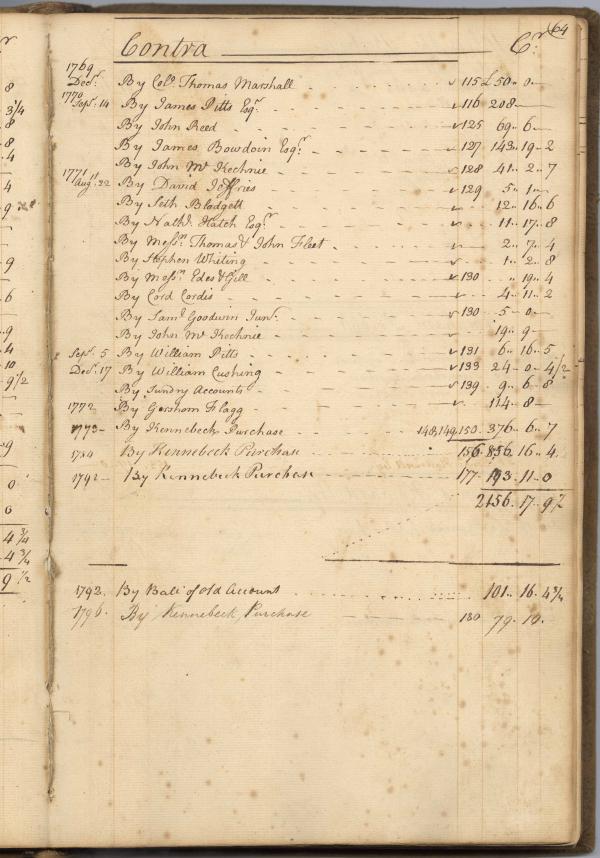 64
Contra Cr.
1769 Decr. By Colo. Thomas Marshall 115 £ 50 .. 0
1770 Sepr. 14 By James Pitts Esqr. 116 208
By John Reed 125 69 .. 6
By James Bowdoin Esqr. 127 143 .. 19 .. 2
By John Mc Kechnie 128 41 .. 2 .. 7
1771 Augt. 22 By David Jeffries 129 5 .. 1
By Seth Blodgett 12 .. 16 .. 6
By Nathl. Hatch Esqr. 11 .. 17 .. 8
By Messrs. Thomas & John Fleet 2 .. 7 .. 4
By Stephen Whiting 1 .. 2 .. 8
By Messrs. Edes & Gill 130 .. 19 .. 4
By Cord Cordis 4 .. 11 .. 2
By Saml. Goodwin Junr. 130 5 .. 0
By John Mc Kechnie 19 .. 9
Sepr. 5 By William Pitts 131 6 .. 16 .. 5
Decr. 17 By William Cushing 133 24 .. 0 .. 4 1/2
By Sundry Accounts 139 9 .. 6 .. 8
1772 By Gershom Flagg 114 .. 8
1773 By Kennebeck Purchase 148, 149, 150 376 .. 6 .. 7
By Kennebeck Purchase 156 856 .. 16 .. 4
By Kennebeck Purchase 177 193 .. 11 .. 0
2156 .. 17 .. 9 1/2
1792 By Balc. of Old Account 101 .. 16 .. 4 3/4
1796 By Kennebeck Purchase 180 79 .. 10